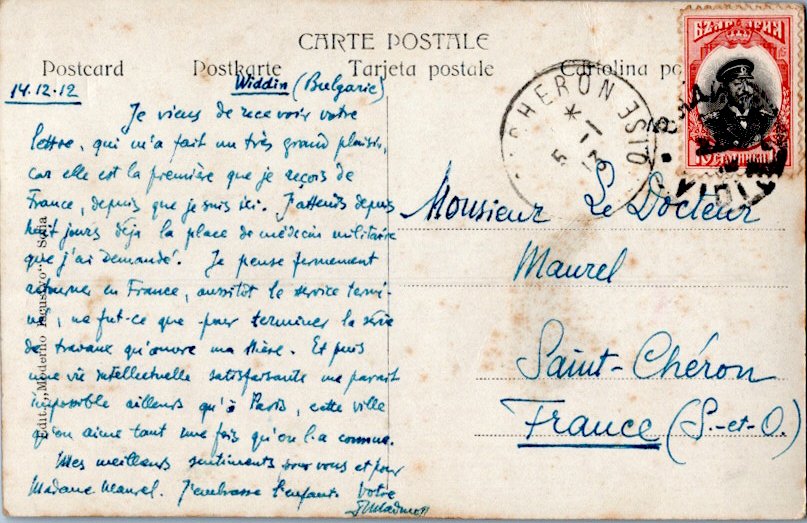 CARTE POSTALE
Postcard Postkarte Tarjeta postale Cartolina po
14.12.12 Widdin (Bulgarie)
Je viens de recevoir votre
lettre, qui m'a fait un très grand plaisir,
car elle est la première que je reçois de
France, depuis que je suis ici. J'attends depuis
huit jours déjà la place de médecin militaire
que j'ai demandé. Je pense fermement
retourner en France, aussitôt le service termi-
né, ne fut-ce que pour terminer la série
de travaux qu'ouvre ma thèse. Et puis
une vie intellectuelle satisfaisante me parait
impossible ailleurs qu'à Paris, cette ville
qu'on aime tant une fois qu'on l'a connue.
Mes meilleurs sentiments pour vous et pour
Madame Maurel. J'embrasse l'enfant. Votre
Monsieur Le Docteur
Maurel
Saint-Chéron
France (S.-et-O.)
Edit. „Moderno
CHERON
OISE
5 - 1
13
БЪЛГАРИЯ
10 СТОТИНКИ